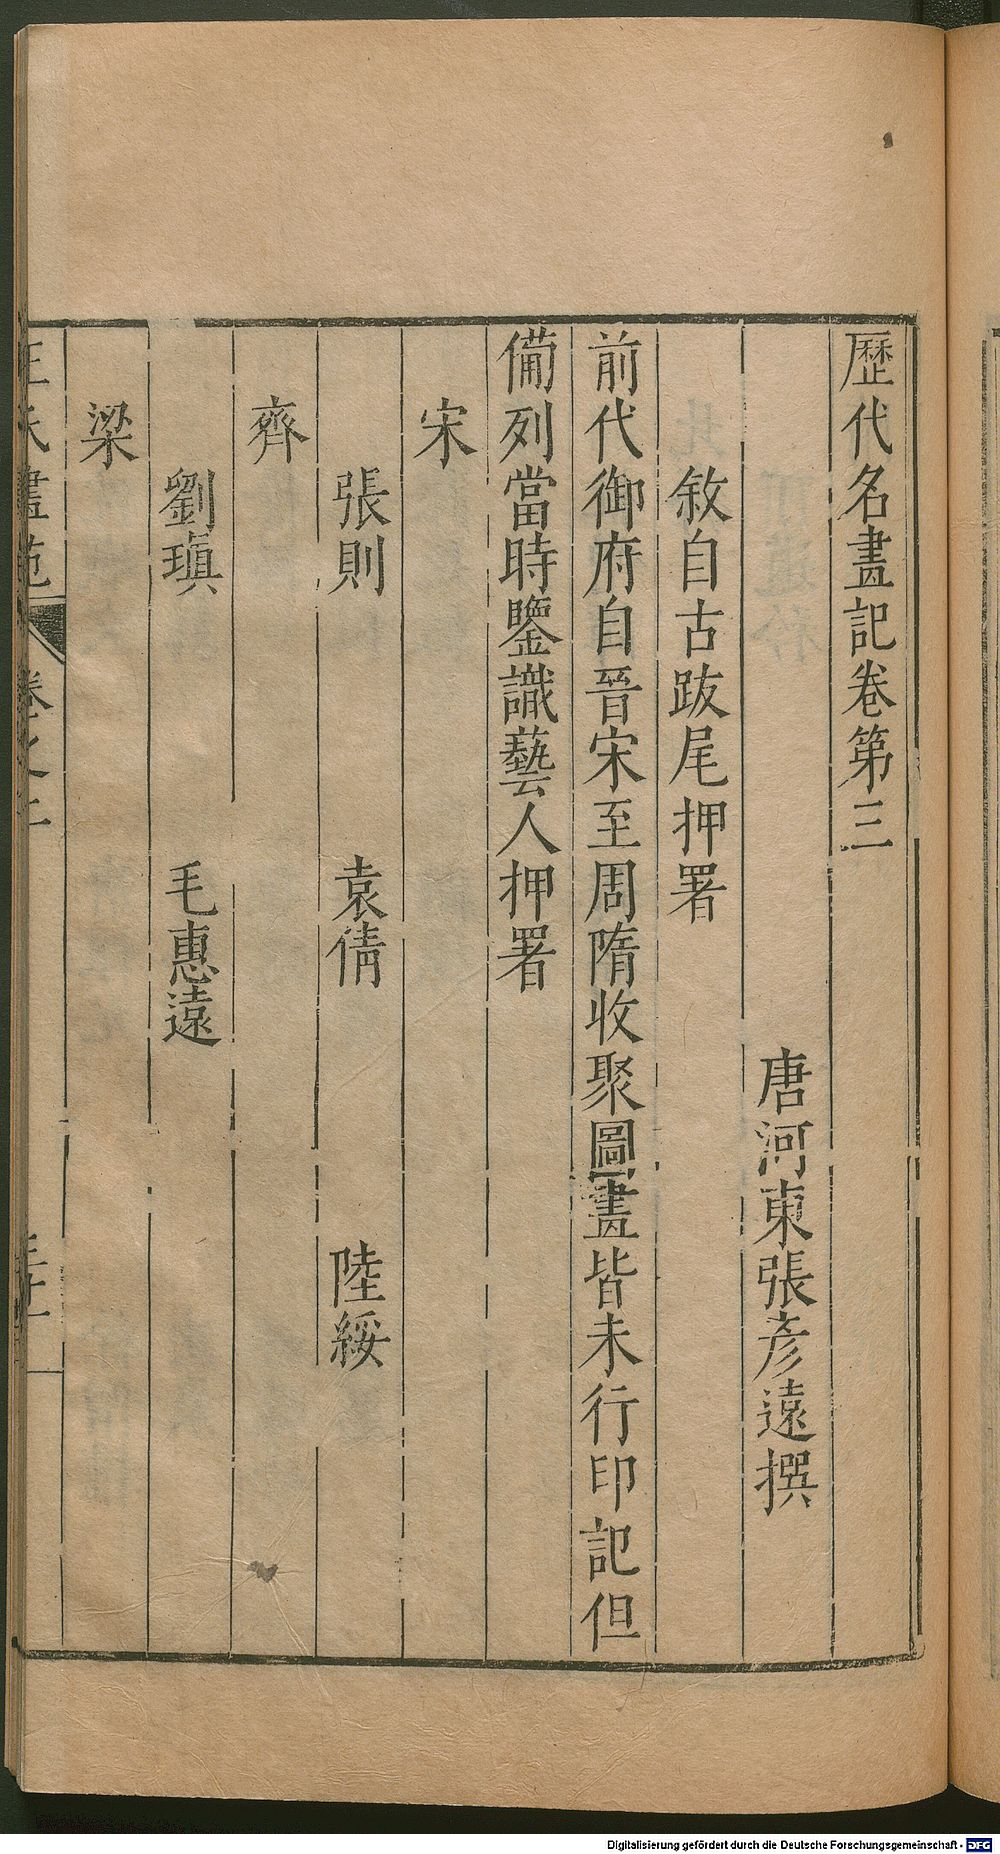 歷代名畫記卷第三
唐河東張彥遠撰
敘自古跋尾押署
前代御府自晉宋至周隋收聚圖畫皆未行印記但
備列當時鑒識藝人押署
宋
張則 袁倩 陸綏
齊
劉瑱 毛惠遠
梁
王氏畫苑 卷之
Digitalisierung gefördert durch die Deutsche Forschungsgemeinschaft - DFG